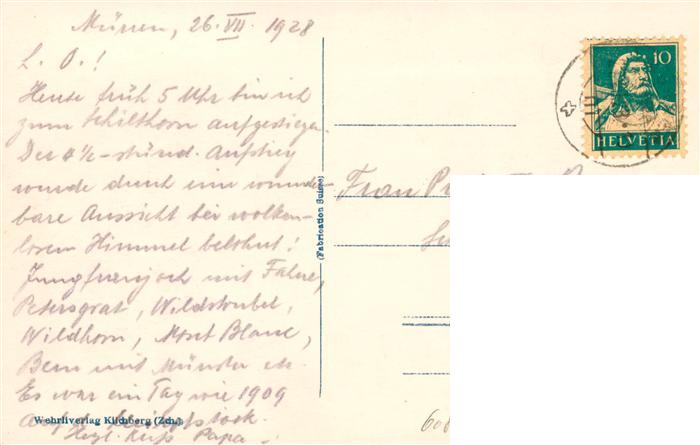 Mürren, 26. VII. 1928
L. O.!
Heute früh 5 Uhr bin ich
zum Schilthorn aufgestiegen.
Der 4½-stünd. Aufstieg
wurde durch eine wunder-
bare Aussicht bei wolken-
losem Himmel belohnt!
Jungfraujoch mit Fahne,
Petersgrat, Wildstrubel,
Wildhorn, Mont Blanc,
Bern mit Münster etc.
Es war ein Tag wie 1909
auf
Herzl. Kuss Papa
Wehrliverlag Kilchberg (Zch.)
(Fabrication Suisse)
10
HELVETIA
Frau